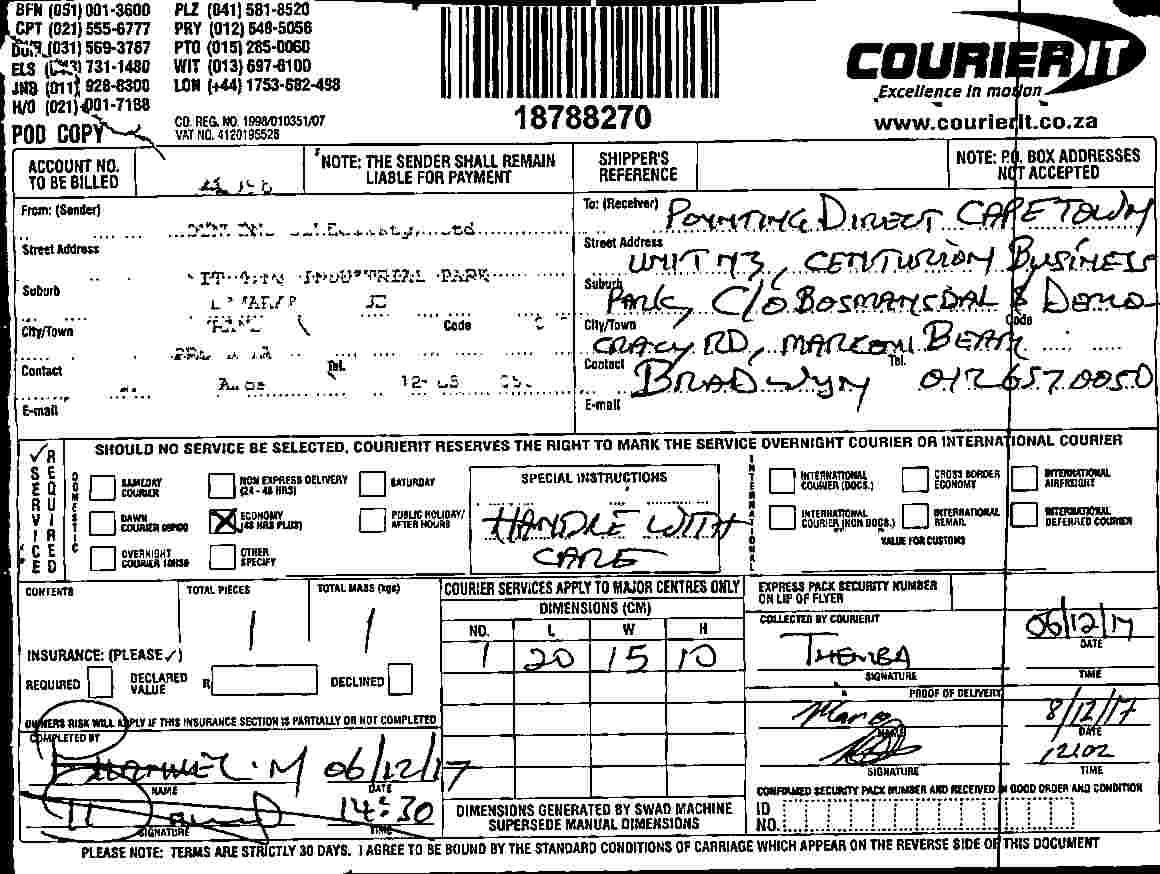 BFN (051) 001-3600 PLZ (041) 581-8520
CPT (021) 555-6777 PRY (012) 548-5056
(031) 569-3767 PTO (015) 285-0060
ELS 731-1480 WIT (013) 697-6100
JNB (011) 928-8300 LON (+44) 1753-682-498
H/O (021) 001-7188
POD COPY
CO. REG. NO. 1998/010351/07
VAT NO. 4120195528
18788270
COURIER IT
Excellence in motion
www.courierit.co.za
ACCOUNT NO. TO BE BILLED
NOTE: THE SENDER SHALL REMAIN LIABLE FOR PAYMENT
SHIPPER'S REFERENCE
NOTE: P.O. BOX ADDRESSES NOT ACCEPTED
From: (Sender)
Street Address
INDUSTRIAL PARK
Suburb
City/Town Code
Contact Tel.
E-mail
To: (Receiver) POYNTING DIRECT CAPE TOWN
Street Address UNIT 73, CENTURION BUSINESS
Suburb PARK, C/O BOSMANSDAL & DEMO
City/Town Code
CRACY RD, MARCONI BEAM
Contact BRADWYN Tel. 012 657 0050
E-mail
SERVICE REQUIRED
SHOULD NO SERVICE BE SELECTED, COURIERIT RESERVES THE RIGHT TO MARK THE SERVICE OVERNIGHT COURIER OR INTERNATIONAL COURIER
DOMESTIC
SAMEDAY COURIER
NON EXPRESS DELIVERY (24 - 48 HRS)
SATURDAY
DAWN COURIER 09H00
ECONOMY (48 HRS PLUS)
PUBLIC HOLIDAY/ AFTER HOURS
OVERNIGHT COURIER 10H30
OTHER SPECIFY
SPECIAL INSTRUCTIONS
HANDLE WITH
CARE
INTERNATIONAL
INTERNATIONAL COURIER (DOCS.)
CROSS BORDER ECONOMY
INTERNATIONAL AIRFREIGHT
INTERNATIONAL COURIER (NON DOCS.)
INTERNATIONAL REMAIL
INTERNATIONAL DEFERRED COURIER
VALUE FOR CUSTOMS
CONTENTS
TOTAL PIECES 1
TOTAL MASS (kgs) 1
INSURANCE: (PLEASE ✓)
REQUIRED DECLARED VALUE R DECLINED
OWNERS RISK WILL APPLY IF THIS INSURANCE SECTION IS PARTIALLY OR NOT COMPLETED
COMPLETED BY
06/12/17
NAME DATE
14:30
SIGNATURE TIME
COURIER SERVICES APPLY TO MAJOR CENTRES ONLY
DIMENSIONS (CM)
NO. L W H
1 20 15 10
DIMENSIONS GENERATED BY SWAD MACHINE SUPERSEDE MANUAL DIMENSIONS
EXPRESS PACK SECURITY NUMBER ON LIP OF FLYER
COLLECTED BY COURIERIT
THEMBA 06/12/17
SIGNATURE DATE
TIME
PROOF OF DELIVERY
8/12/17
NAME DATE
12:02
SIGNATURE TIME
CONFIRMED SECURITY PACK NUMBER AND RECEIVED IN GOOD ORDER AND CONDITION
ID NO.
PLEASE NOTE: TERMS ARE STRICTLY 30 DAYS. I AGREE TO BE BOUND BY THE STANDARD CONDITIONS OF CARRIAGE WHICH APPEAR ON THE REVERSE SIDE OF THIS DOCUMENT